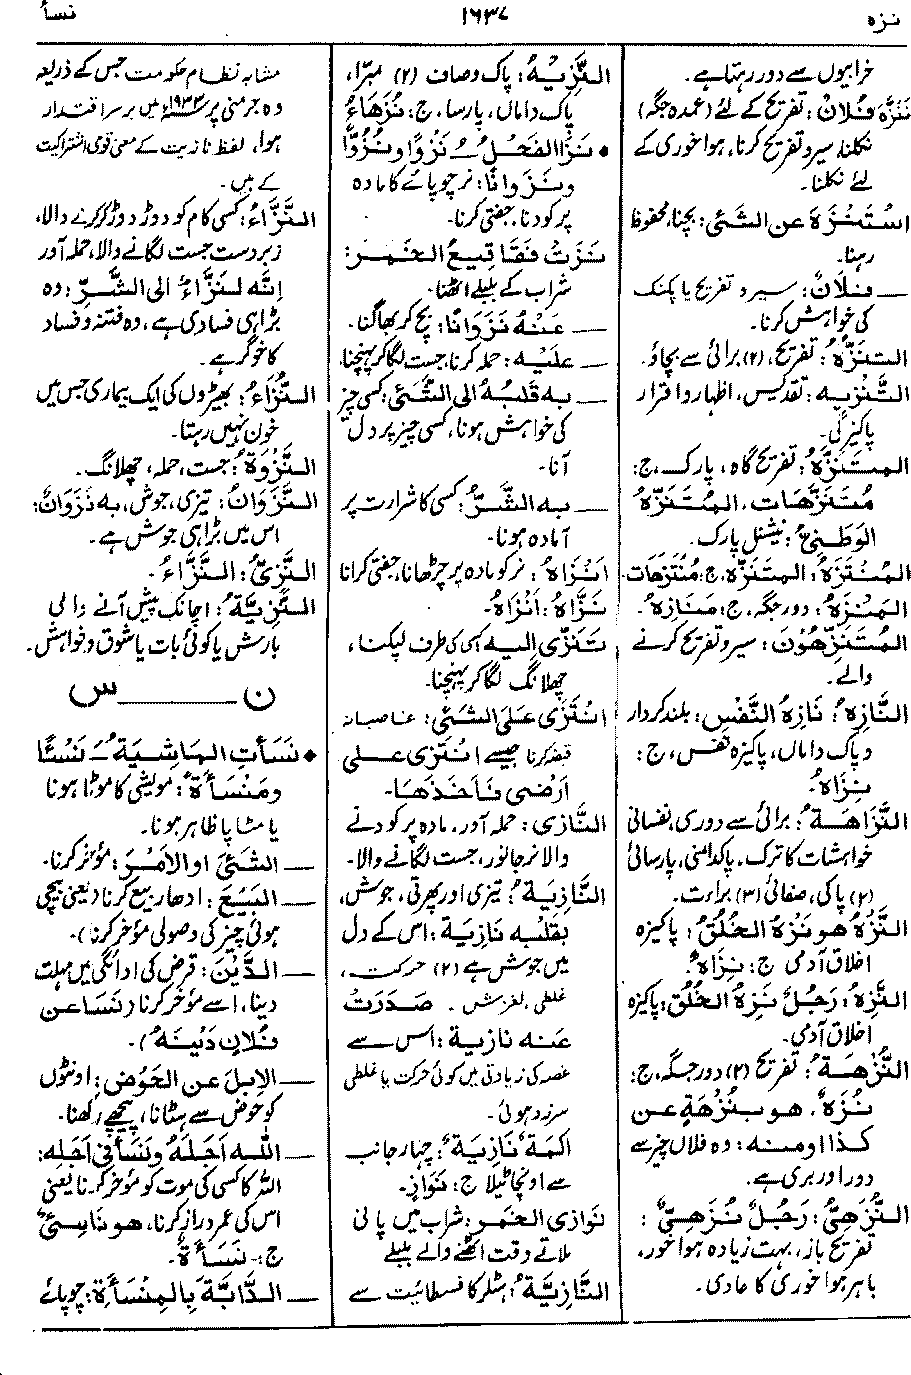 نزہ ۱۶۳۷ نسأ
خرابیوں سے دور رہتا ہے۔
تَنَزَّہَ فُلَانٌ: تفریح کے لئے (عمدہ جگہ)
نکلنا، سیر و تفریح کرنا، ہوا خوری کے
لئے نکلنا۔
اسْتَنْزَہَ عن الشئی: بچنا، محفوظ
رہنا۔
— فلانٌ: سیر و تفریح یا پکنک
کی خواہش کرنا۔
التنزّہُ: تفریح، (۲) برائی سے بچاؤ۔
التَّنْزِیہ: تقدیس، اظہار و اقرار
پاکیزگی۔
المتنزَّہُ: تفریح گاہ، پارک، ج:
مُتَنَزَّھَات، المُتَنَزَّہُ
الوَطَنیُّ: نیشنل پارک۔
المُنْتَزَہُ: المتنزَّہ، ج: مُنْتَزَھَات۔
المَنْزَہُ: دور جگہ، ج: مَنَازِہُ۔
المُتَنَزِّھُوْنَ: سیر و تفریح کرنے
والے۔
النَّازِہُ: نَازِہُ النَّفْسِ: بلند کردار
و پاک داماں، پاکیزہ نفس، ج:
نِزَاہٌ۔
النَّزَاھَۃُ: برائی سے دوری، نفسانی
خواہشات کا ترک، پاکدامنی، پارسائی
(۲) پاکی، صفائی (۳) براءت۔
النَّزْہُ ھو نَزْہُ الخُلُقُ: پاکیزہ
اخلاق آدمی ج: نِزَاہٌ۔
النَّزِہُ: رَجُلٌ نَزِہُ الخُلُق: پاکیزہ
اخلاق آدمی۔
النُّزْھَۃُ: تفریح (۲) دور جگہ، ج:
نُزَہٌ، ھو بنُزْھَۃٍ عن
کذا او منہ: وہ فلاں چیز سے
دور اور بری ہے۔
النُّزَھِیُّ: رَجُلٌ نُزَھِیٌّ:
تفریح باز، بہت زیادہ ہوا خور،
باہر ہوا خوری کا عادی۔
النَّزِیْہُ: پاک و صاف (۲) مبرّا،
پاک داماں، پارسا، ج: نُزَھَاءُ
• نَزَا الفَحْلُ ـُ نَزْوًا و نُزُوًّا
و نَزَوَانًا: نر چوپائے کا مادہ
پر کودنا، جفتی کرنا۔
نَزَتْ فَقَاقِیعُ الخَمْرِ:
شراب کے بلبلے اٹھنا۔
— عَنْہُ نَزَوَانًا: بچ کر بھاگنا۔
— علَیْہِ: حملہ کرنا، جست لگا کر پہنچنا
— بہ قلبُہُ الی الشَّئی: کسی چیز
کی خواہش ہونا، کسی چیز پر دل
آنا۔
— بہ الشَّرُّ: کسی کا شرارت پر
آمادہ ہونا۔
اَنْزَاہُ: نر کو مادہ پر چڑھانا، جفتی کرانا
نَزَّاہُ: اَنْزَاہُ۔
تَنَزّٰی الیہ: کسی کی طرف لپکنا،
چھلانگ لگا کر پہنچنا۔
انْتَزٰی عَلَی الشَّئی: غاصبانہ
قبضہ کرنا جیسے انْتَزٰی علی
اَرْضِی فَاَخَذَھَا۔
النَّازِی: حملہ آور، مادہ پر کودنے
والا نر جانور، جست لگانے والا۔
النَّازِیَۃُ: تیزی اور پھرتی، جوش،
بقلبہ نازِیۃ: اس کے دل
میں جوش ہے (۲) حرکت،
غلطی، لغزش۔ صَدَرَتْ
عنہ نازیۃ: اس سے
غصہ کی زیادتی میں کوئی حرکت یا غلطی
سرزد ہوئی۔
اَکَمَۃٌ نَازِیَۃٌ: چہار جانب
سے اونچا ٹیلا ج: نَوَازٍ۔
نَوَازِی الخَمْرِ: شراب میں پانی
ملاتے وقت اٹھنے والے بلبلے
النَّازِیَّۃُ: ہٹلر کا فسطائیت سے
مشابہ نظام حکومت جس کے ذریعہ
وہ جرمنی پر ۱۹۳۳ء میں برسر اقتدار
ہوا، لفظ نازیت کے معنی قومی اشتراکیت
کے ہیں۔
النَّزَّاءُ: کسی کام کو دوڑ دوڑ کر کرنے والا،
زبردست جست لگانے والا، حملہ آور
اِنَّہ لنَزَّاءٌ الی الشَّرِّ: وہ
بڑا ہی فسادی ہے، وہ فتنہ و فساد
کا خوگر ہے۔
النُّزَاءُ: بھیڑوں کی ایک بیماری جس میں
خون نہیں رہتا۔
النَّزْوَۃُ: جست، حملہ، چھلانگ۔
النَّزَوَانُ: تیزی، جوش، بہ نَزَوَانٌ:
اس میں بڑا ہی جوش ہے۔
النَّزِیُّ: النَّزَّاءُ۔
النَّزِیَّۃُ: اچانک پیش آنے والی
بارش یا کوئی بات یا شوق و خواہش۔
ن ــــــ س
• نَسَأَتِ المَاشِیَۃُ ـَ نَسْئًا
و مَنْسَأَۃً: مویشی کا موٹا ہونا
یا مٹاپا ظاہر ہونا۔
— الشَّئیَ او الاَمْرَ: مؤخر کرنا۔
— البَیْعَ: ادھار بیع کرنا (یعنی بیچی
ہوئی چیز کی وصولی مؤخر کرنا)۔
— الدَّیْنَ: قرض کی ادائگی میں مہلت
دینا، اسے مؤخر کرنا (نَسَأ عن
فُلَانٍ دَیْنَہُ)۔
— الاِبِلَ عن الحَوْضِ: اونٹوں
کو حوض سے ہٹانا، پیچھے رکھنا۔
— اللہُ اَجَلَہُ و نَسَأ فی اَجَلِہ:
اللہ کا کسی کی موت کو مؤخر کرنا یعنی
اس کی عمر دراز کرنا، ھو نَاسِئٌ
ج: نَسَأَۃٌ۔
— الدَّابَّۃَ بِالمِنْسَأَۃِ: چوپائے